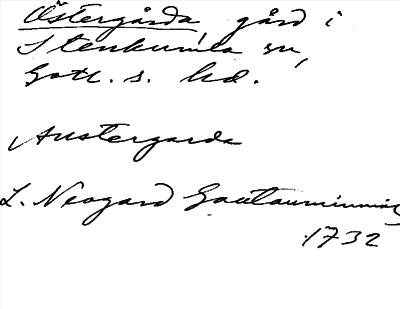 Östergårda, gård i
Stenkumla sn,
Gotl. s. hd.
Austergarda
L. Neogard Gautauminning
1732